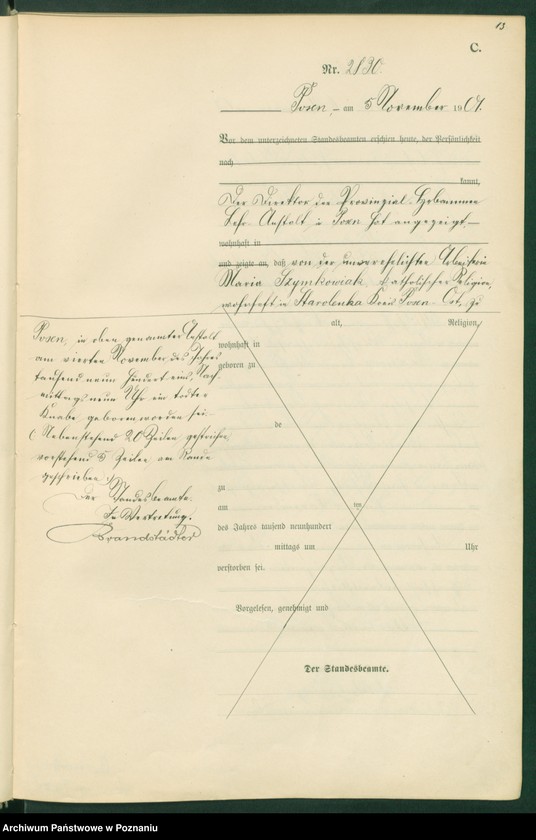 13
C.
Nr. 2830.
Posen, am 5 November 1901.
Vor dem unterzeichneten Standesbeamten erschien heute, der Persönlichkeit
nach
kannt,
Der Direktor der Provinzial-Hebammen
Lehr-Anstalt in Posen hat angezeigt,
wohnhaft in
und zeigte an, daß von der unverehelichten Arbeiterin
Maria Szymkowiak, katholischer Religion,
wohnhaft in Starolenka Kreis Posen-Ost, zu
alt, Religion,
wohnhaft in
geboren zu
de
zu
am ten
des Jahres tausend neunhundert
mittags um Uhr
verstorben sei.
Vorgelesen, genehmigt und
Der Standesbeamte.
Posen, in oben genannter Anstalt
am vierten November des Jahres
tausend neun hundert eins, Nach-
mittags neun Uhr ein todter
Knabe geboren worden sei.
Nebenstehend 20 Zeilen gestrichen
vorstehend 5 Zeilen am Rande
geschrieben.
Der Standesbeamte.
In Vertretung.
Brandstädter
Archiwum Państwowe w Poznaniu